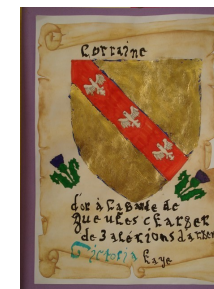 Lorraine
d'or à la bande de
gueules charger
de 3 alérions d'argen
Victoria Kaye